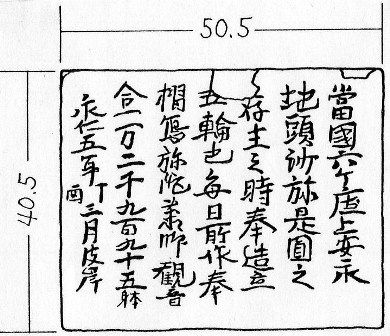 50.5
40.5
當國六ケ庄上安永
地頭沙弥是圓之
存生之時奉造立
五輪也毎日所作奉
摺寫弥陀薬師觀音
合一万二千九百九十五躰
永仁五年丁酉二月彼岸